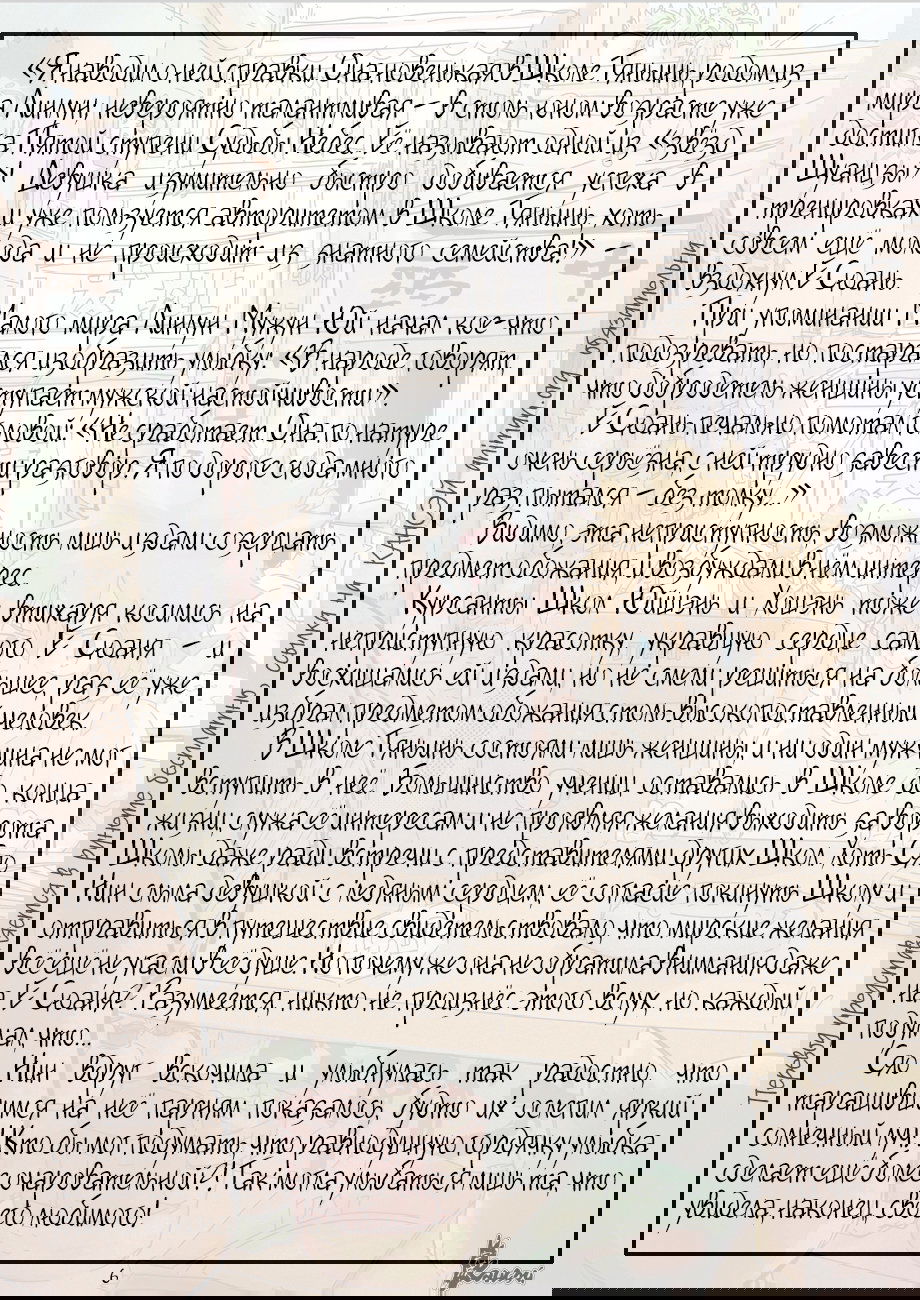 «Я наводил о ней справки. Она новенькая в Школе Тяньинь, родом из
мира Линлун, невероятно талантливая – в столь юном возрасте уже
достигла Пятой ступени Судьбы Небес. Её называют одной из «звёзд
Шуанцзы»! Девушка изумительно быстро добивается успеха в
тренировках и уже пользуется авторитетом в Школе Тяньинь, хоть
совсем ещё молода и не происходит из знатного семейства!» –
вздохнул И Сюань.
При упоминании Малого мира Линлун Мужун Юй начал кое-что
подозревать, но постарался изобразить улыбку: «В народе говорят,
что добродетель женщины уступает мужской настойчивости».
И Сюань печально помотал головой: «Не сработает. Она по натуре
очень серьёзна, с ней трудно завести разговор. Я по дороге сюда много
раз пытался – без толку...»
Видимо, эта неприступность, возможность лишь издали созерцать
предмет обожания и возбуждали в нём интерес.
Курсанты Школ Юйшань и Хошань тоже втихаря косились на
неприступную красотку, укравшую сердце самого И Сюаня – и
восхищались ей издали, но не смели решиться на большее, раз её уже
избрал предметом обожания столь высокопоставленный человек.
В Школе Тяньинь состояли лишь женщины, и ни один мужчина не мог
вступить в неё. Большинство учениц оставались в Школе до конца
жизни, служа её интересам и не проявляя желания выходить за ворота
Школы даже ради встречи с представителями других Школ. Хоть Сяо
Нин слыла девушкой с ледяным сердцем, её согласие покинуть Школу и
отправиться в путешествие свидетельствовало, что мирские желания
всё ещё не угасли в её душе. Но почему же она не обратила внимания даже
на И Сюаня? Разумеется, никто не произнёс этого вслух, но каждый
подумал, что...
Сяо Нин вдруг вскочила и улыбнулась так радостно, что
таращившимся на неё парням показалось, будто их ослепил яркий
солнечный луч. Кто бы мог подумать, что равнодушную гордячку улыбка
сделает ещё более очаровательной?! Так могла улыбаться лишь та, что
увидела, наконец, своего любимого!
6